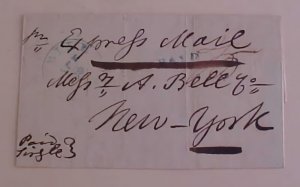 pr Express Mail
PAID
Messrs A. Bell & Co
New-York
Paid
Single